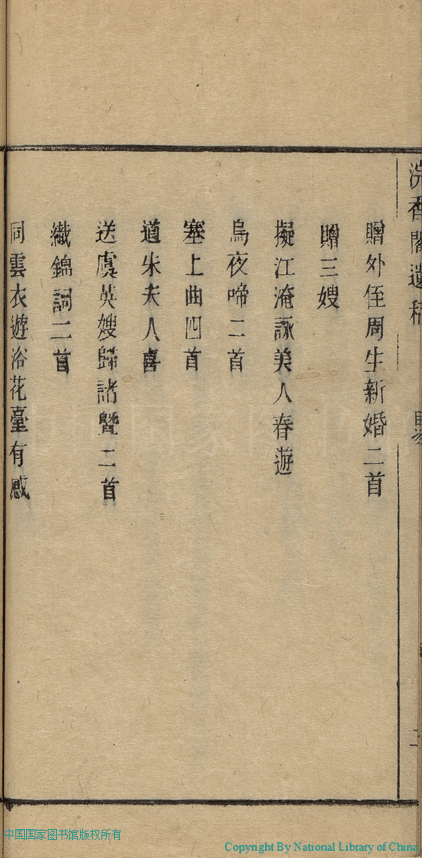 浣香閣遺稿 目錄
贈外侄周生新婚二首
贈三嫂
擬江淹詠美人春遊
烏夜啼二首
塞上曲四首
道朱夫人喜
送虞英嫂歸諸暨二首
織錦詞二首
同雲衣遊浴花臺有感
中国国家图书馆版权所有
Copyright By National Library of China